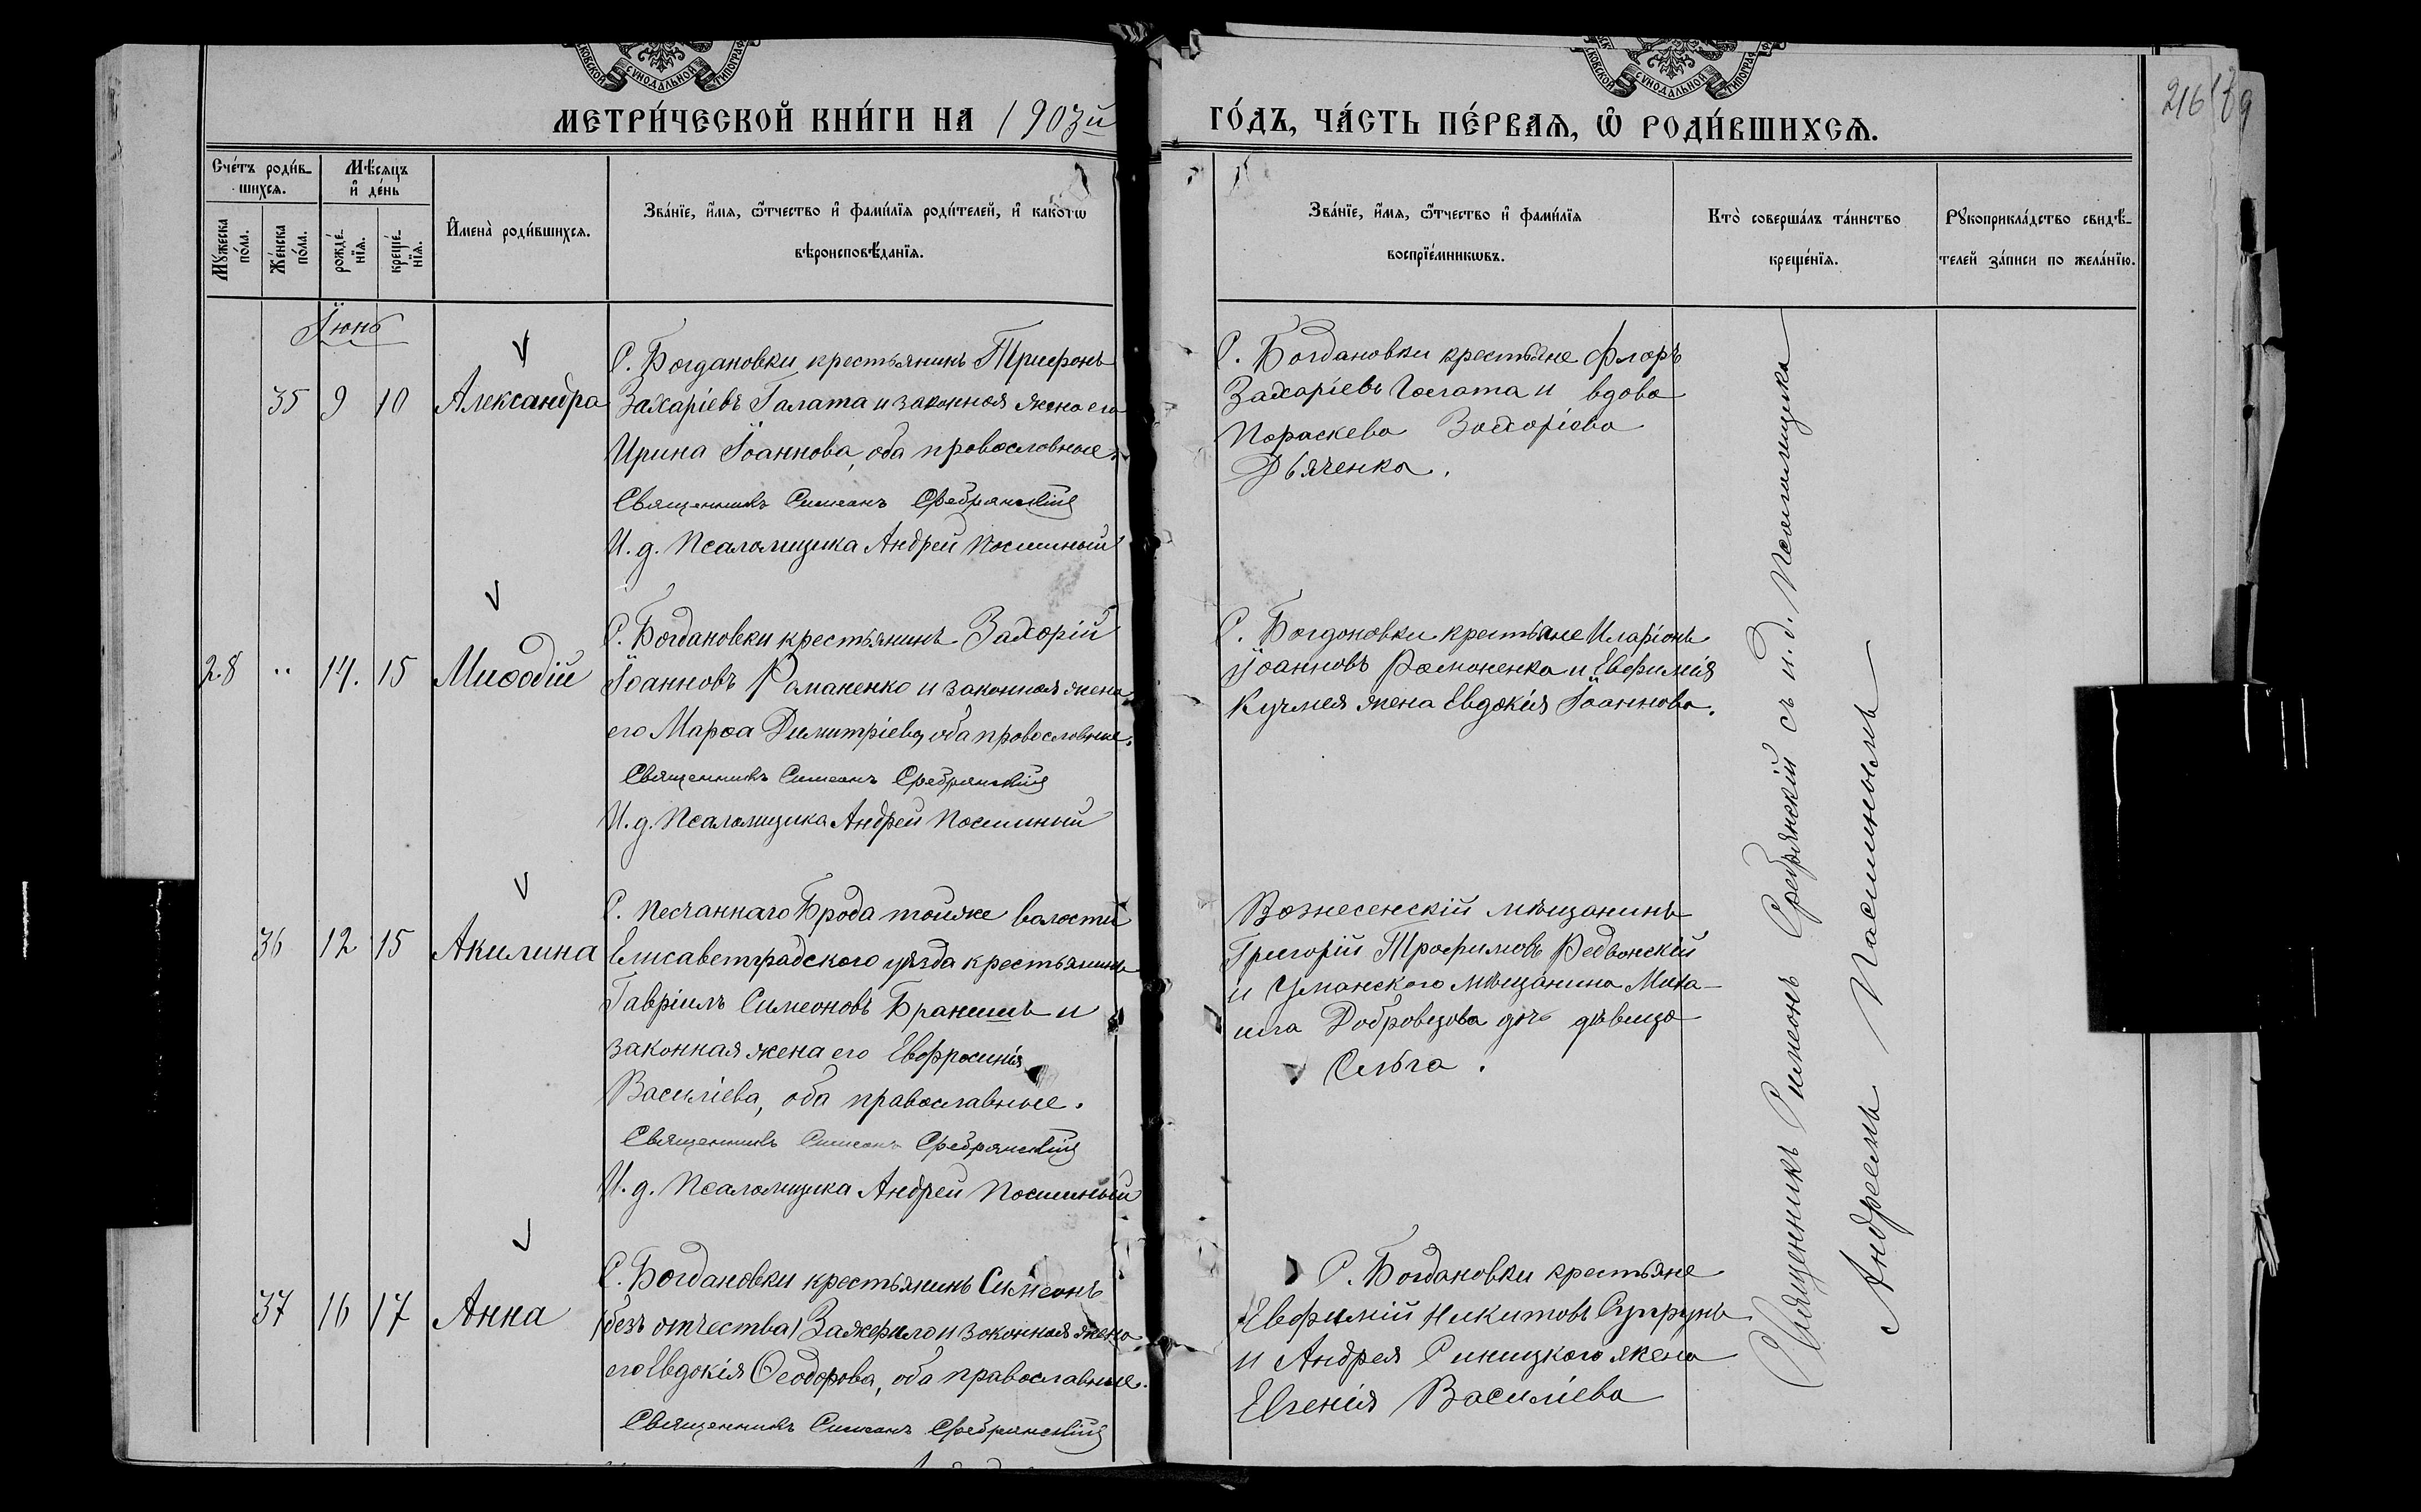 МЕТРИ́ЧЕСКОЙ КНИ́ГИ НА 1903й
ГО́ДЪ, ЧА́СТЬ ПЕ́РВАѦ, Ѡ҆ РОДИ́ВШИХСѦ.
216
Сче́тъ роди́в-
шихсѧ.
Мѣ́сѧцъ
и҆ де́нь
Мꙋ́жеска
по́ла.
Же́нска
по́ла.
рожде́-
нїѧ.
креще́-
нїѧ.
И҆мена̀ роди́вшихсѧ.
Зва́нїе, и҆́мѧ, ѻ҆́тчество и҆ фами́лїѧ роди́телей, и҆ како́гѡ
вѣроисповѣ́данїѧ.
Зва́нїе, и҆́мѧ, ѻ҆́тчество и҆ фами́лїѧ
воспрїе́мникѡвъ.
Кто̀ соверша́лъ та́инство
креще́нїѧ.
Рꙋкоприкла́дство свидѣ́-
телей за́писи по жела́нїю.
Іюнь
35 9 10 Александра
С. Богдановки крестьянинъ Трифонъ
Захаріевъ Галата и законная жена его
Ирина Іоаннова, оба православные.
Священникъ Симеонъ Сребрянскій
И. д. Псаломщика Андрей Пасишный
С. Богдановки крестьяне Флоръ
Захаріевъ Галата и вдова
Параскева Захаріева
Дьяченко.
28 " 14. 15 Меѳодій
С. Богдановки крестьянинъ Захарій
Іоанновъ Романенко и законная жена
его Марѳа Димитріева, оба православные.
Священникъ Симеонъ Сребрянскій
И. д. Псаломщика Андрей Пасишный
С. Богдановки крестьяне Иларіонъ
Іоанновъ Романенко и Евфимія
Кучмея жена Евдокія Іоаннова.
36 12 15 Акилина
С. Песчаннаго Брода тойже волости
Елисаветградского уѣзда крестьянинъ
Гавріилъ Симеоновъ и
законная жена его Евфросинія
Василіева, оба православные.
Священникъ Симеонъ Сребрянскій
И. д. Псаломщика Андрей Пасишный
Вознесенскій мѣщанинъ
Григорій Трофимовъ
и Уманского мѣщанина Миха-
ила дочь дѣвица
Ольга.
37 16 17 Анна
С. Богдановки крестьянинъ Симеонъ
(безъ отчества) и законная жена
его Евдокія Ѳеодорова, оба православные.
Священникъ Симеонъ Сребрянскій
С. Богдановки крестьяне
Евфимій Никитовъ Супрунъ
и Андрея Синицкого жена
Евгенія Василіева
Священникъ Симеонъ Сребрянскій съ и. д. Псаломщика
Андреемъ Пасишнымъ